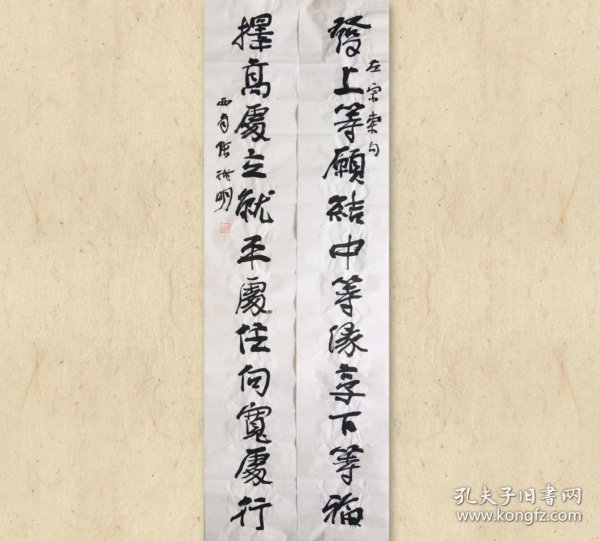 發上等願結中等緣享下等福
左宗棠句
擇高處立就平處住向寬處行
孔夫子旧书网
www.kongfz.com